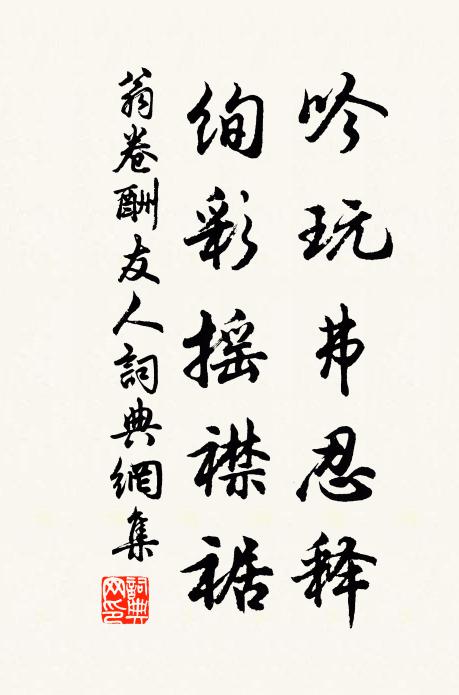 吟玩弗忍释
绚彩摇襟裾
翁卷酬友人詞典網集
詞典网印